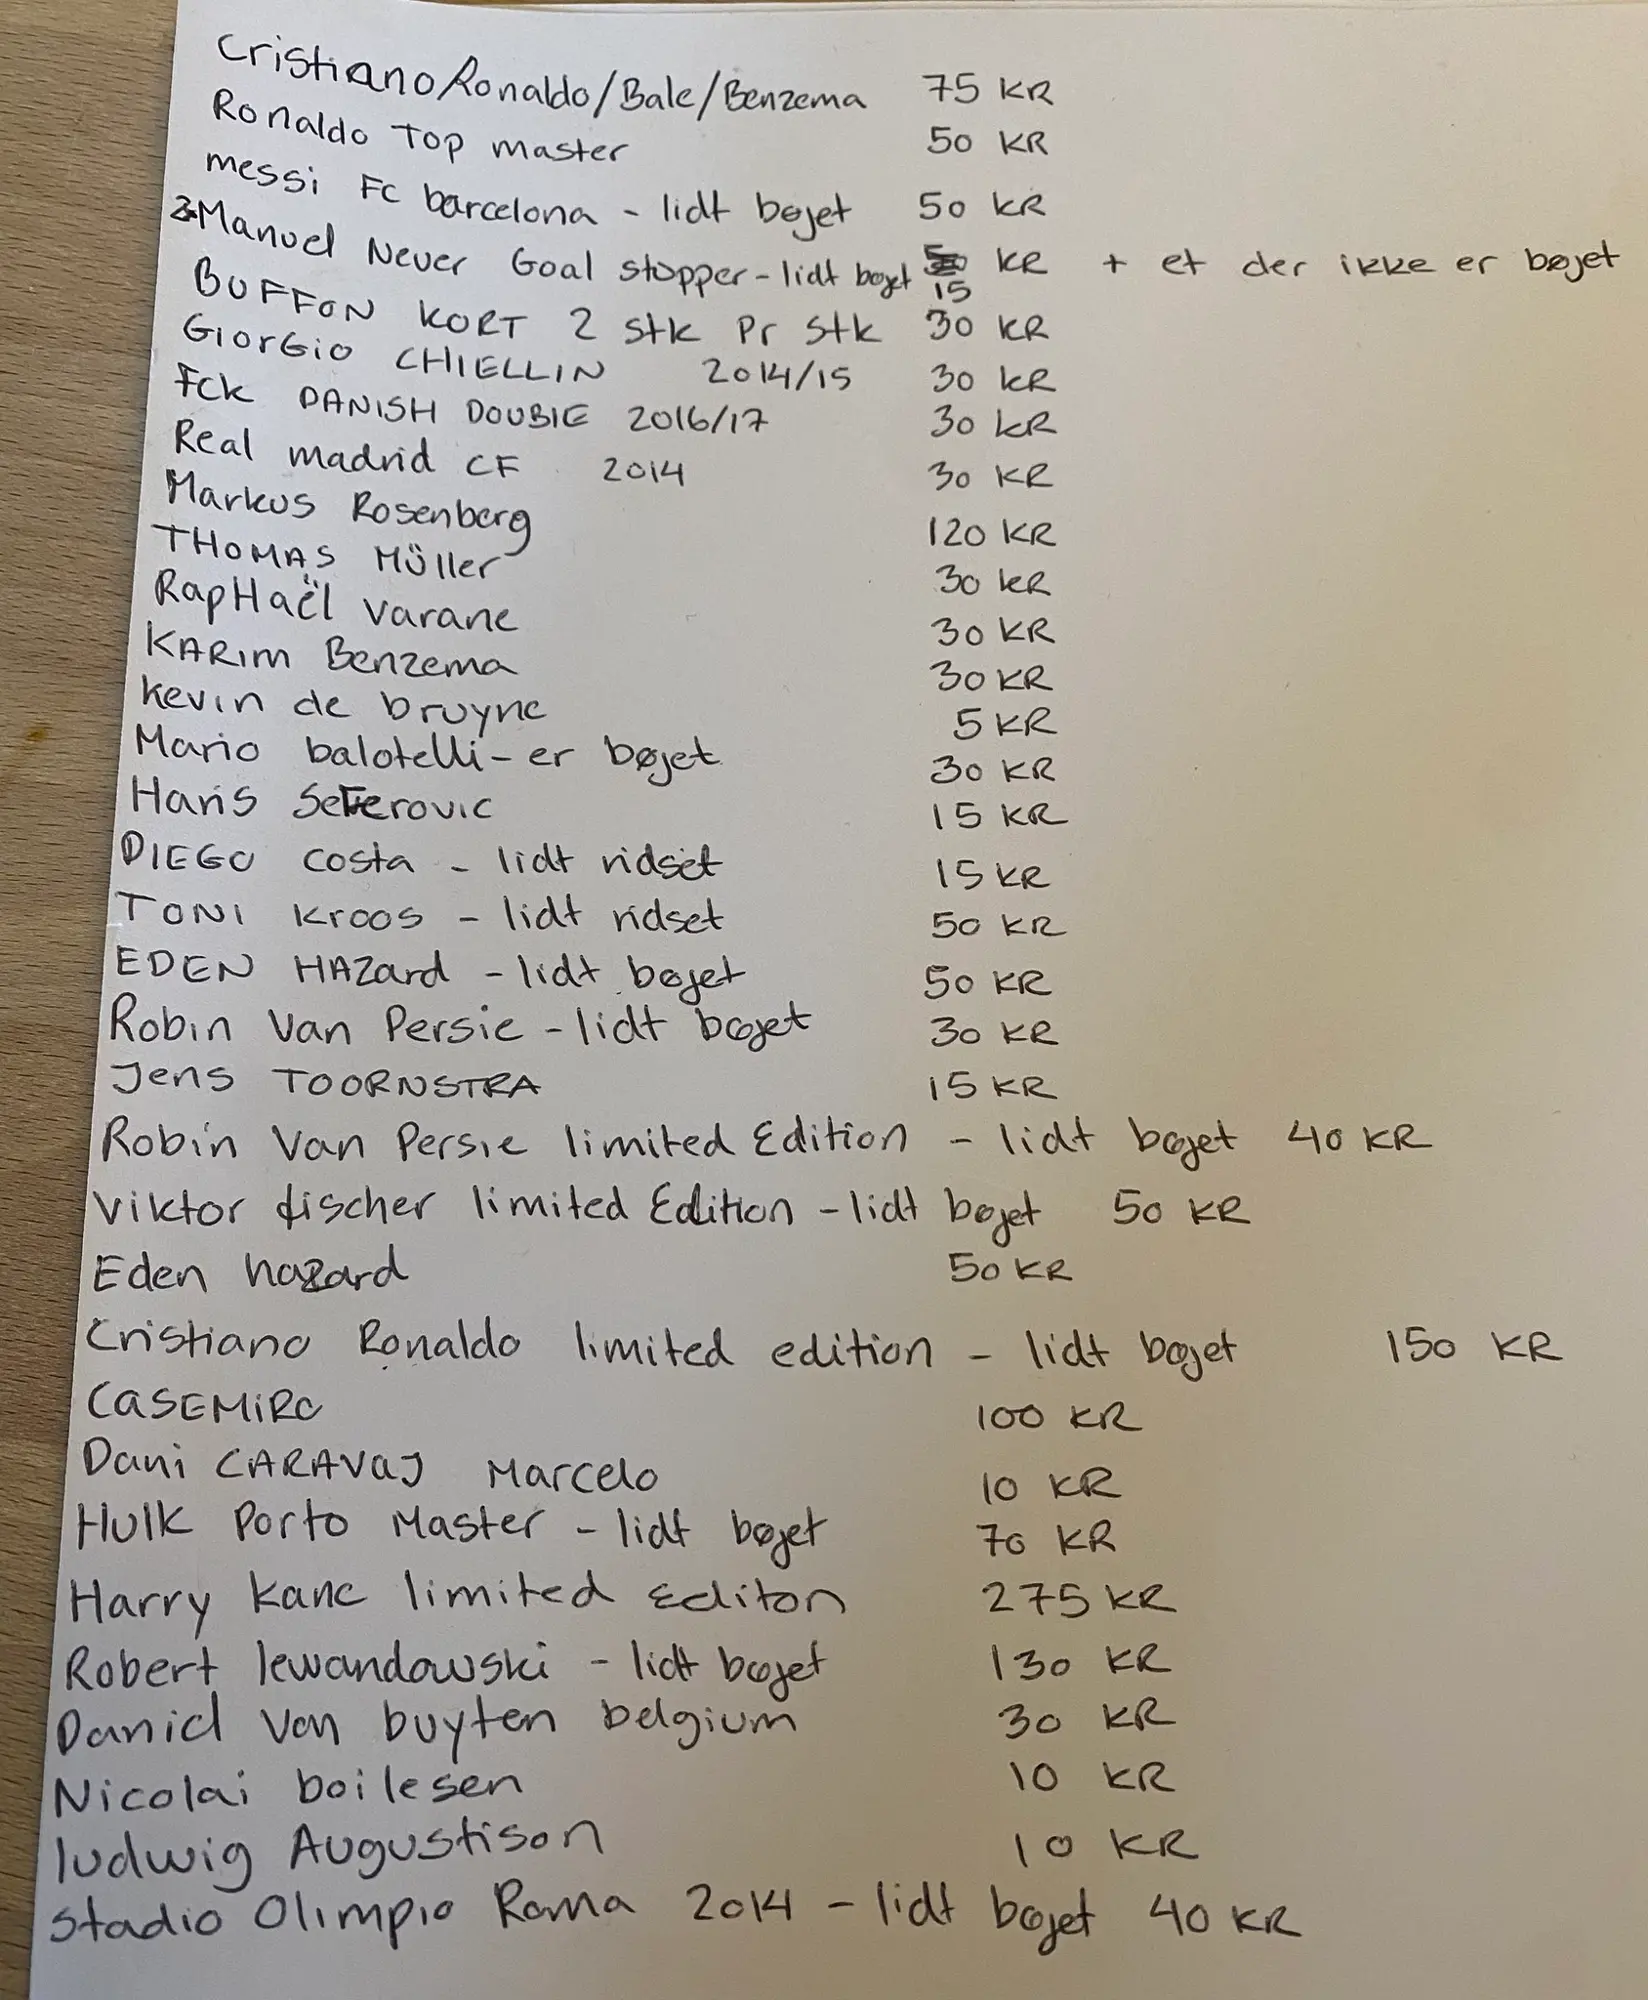 Cristiano Ronaldo/Bale/Benzema 75 KR
Ronaldo Top master 50 KR
messi FC barcelona - lidt bøjet 50 KR
Manuel Neuer Goal stopper - lidt bøjet 15 KR + et der ikke er bøjet
BUFFON KORT 2 stk Pr stk 30 KR
GiorGio CHIELLIN 2014/15 30 KR
FCK DANISH DOUBlE 2016/17 30 KR
Real madrid CF 2014 30 KR
Markus Rosenberg 120 KR
THOMAS Müller 30 KR
RapHaël varane 30 KR
KARIM Benzema 30 KR
Kevin de bruyne 5 KR
Mario balotelli - er bøjet 30 KR
Haris Seferovic 15 KR
DIEGO costa - lidt ridset 15 KR
TONI Kroos - lidt ridset 50 KR
EDEN HAZard - lidt bøjet 50 KR
Robin Van Persie - lidt bøjet 30 KR
Jens TOORNSTRA 15 KR
Robin Van Persie limited Edition - lidt bøjet 40 KR
Viktor fischer limited Edition - lidt bøjet 50 KR
Eden hazard 50 KR
Cristiano Ronaldo limited edition - lidt bøjet 150 KR
CASEMiRO 100 KR
Dani CARAVAJ Marcelo 10 KR
Hulk Porto Master - lidt bøjet 70 KR
Harry Kane limited Editon 275 KR
Robert lewandowski - lidt bøjet 130 KR
Daniel Van buyten belgium 30 KR
Nicolai boilesen 10 KR
ludwig Augustison 10 KR
Stadio Olimpio Roma 2014 - lidt bøjet 40 KR